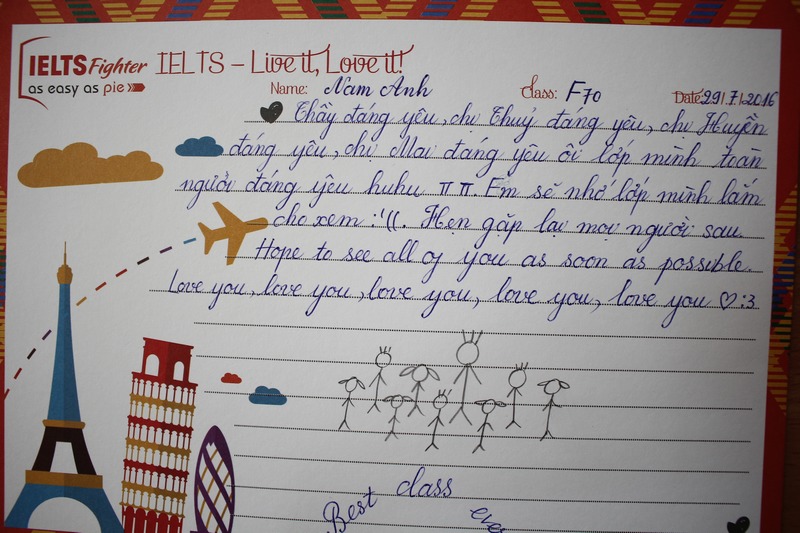 IELTS Fighter
as easy as pie
IELTS – Live it, Love it!
Name: Nam Anh Class: F70 Date: 29/7/2016
Thầy đáng yêu, chị Thuỷ đáng yêu, chị Huyền
đáng yêu, chị Mai đáng yêu ôi lớp mình toàn
người đáng yêu huhu π π. Em sẽ nhớ lớp mình lắm
cho xem :'((. Hẹn gặp lại mọi người sau.
Hope to see all of you as soon as possible.
Love you, love you, love you, love you, love you ♡ :3
Best class ever